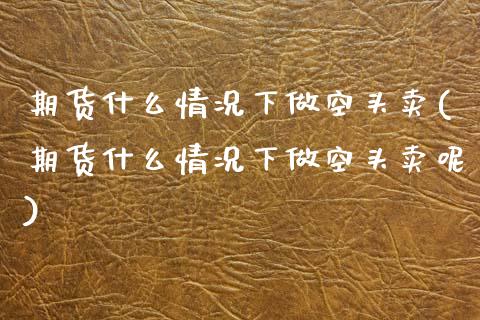 期货什么情况下做空头卖(
期货什么情况下做空头卖呢
)